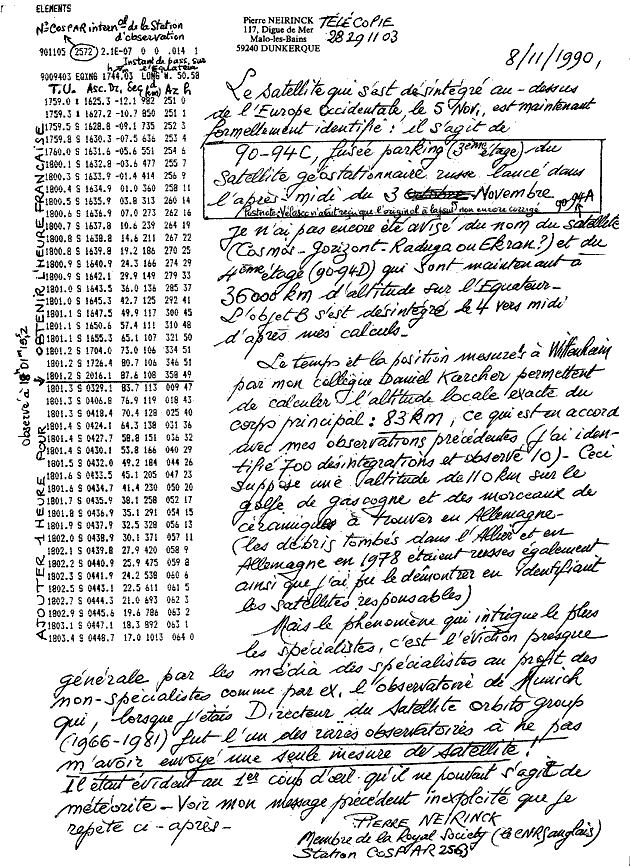 ELEMENTS
No CosPAR internal de la Station
d'observation
901105 2572 2.1E-07 0 0 .014 1
Instant de pass. sur
l'Equateur
9009403 EQXNG 1744.03 LONG W. 50.58
T.U. Asc. D. Seg (km) Az h
1759.0 N 1625.3 -12.1 982 251 0
1759.3 N 1627.2 -10.7 850 251 1
1759.5 S 1628.8 -09.1 735 252 3
1759.8 S 1630.3 -07.5 636 253 4
1760.0 S 1631.6 -05.6 551 254 6
1800.1 S 1632.8 -03.6 477 255 7
1800.3 S 1633.9 -01.4 414 256 9
1800.4 S 1634.9 01.0 360 258 11
1800.5 S 1635.9 03.8 313 260 14
1800.6 S 1636.9 07.0 273 262 16
1800.7 S 1637.8 10.6 239 264 19
1800.8 S 1638.8 14.6 211 267 22
1800.8 S 1639.8 19.2 186 270 25
1800.9 S 1640.9 24.3 166 274 29
1800.9 S 1642.1 29.9 149 279 33
1801.0 S 1643.5 36.0 136 285 37
1801.0 S 1645.3 42.7 125 292 41
1801.1 S 1647.5 49.9 117 300 45
1801.1 S 1650.6 57.4 111 310 48
1801.1 S 1655.3 65.1 107 321 50
1801.2 S 1704.0 73.0 106 334 51
1801.2 S 1726.4 80.7 106 346 51
1801.2 S 2016.1 87.6 108 358 49
1801.3 S 0329.1 83.7 113 009 47
1801.3 S 0406.8 76.9 119 018 43
1801.3 S 0418.4 70.4 128 025 40
1801.4 S 0424.1 64.3 138 031 36
1801.4 S 0427.7 58.8 151 036 32
1801.4 S 0430.1 53.8 166 040 29
1801.5 S 0432.0 49.2 184 044 26
1801.6 S 0433.5 45.1 205 047 23
1801.6 S 0434.7 41.4 230 050 20
1801.7 S 0435.9 38.1 258 052 17
1801.8 S 0436.9 35.1 291 054 15
1801.9 S 0437.9 32.5 328 056 13
1802.0 S 0438.9 30.1 371 057 11
1802.1 S 0439.8 27.9 420 058 9
1802.2 S 0440.9 25.9 475 059 8
1802.3 S 0441.9 24.2 538 060 6
1802.5 S 0443.1 22.5 611 061 5
1802.7 S 0444.3 21.0 693 062 3
1802.9 S 0445.6 19.6 786 063 2
1803.1 S 0447.1 18.3 892 063 1
1803.4 S 0448.7 17.0 1013 064 0
AJOUTER 1 HEURE POUR OBTENIR L'HEURE FRANÇAISE
Observé à 18h 01m
Pierre NEIRINCK
117, Digue de Mer
Malo-les-Bains
59240 DUNKERQUE
TÉLÉCOPIE
28 29 11 03
8/11/1990,
Le satellite qui s'est désintégré au-dessus
de l'Europe Occidentale, le 5 Nov., est maintenant
formellement identifié : il s'agit de
90-94C, fusée parking (3ème étage) du
satellite géostationnaire russe lancé dans
l'après-midi du 3 Octobre Novembre 90-94A
non encore corrigé
Je n'ai pas encore été avisé du nom du satellite
(Cosmos-Gorizont-Raduga ou Ekran?) et du
4ème étage (90-94D) qui sont maintenant à
36000 km d'altitude sur l'Equateur-
L'objet B s'est désintégré le 4 vers midi
d'après mes calculs-
Le temps et la position mesurés à Wittenheim
par mon collègue Daniel Karcher permettent
de calculer l'altitude locale exacte du
corps principal : 83 km, ce qui est en accord
avec mes observations précédentes (j'ai iden-
tifié 700 désintégrations et observé 10)- Ceci
suppose une altitude de 110 km sur le
golfe de gascogne et des morceaux de
céramiques à trouver en Allemagne-
(les débris tombés dans l'Allier et en
Allemagne en 1978 étaient russes également
ainsi que j'ai pu le démontrer en identifiant
les satellites responsables)
Mais le phénomène qui intrigue le plus
les spécialistes, c'est l'éviction presque
générale par les média des spécialistes au profit des
non-spécialistes comme par ex. l'observatoire de Munich
qui, lorsque j'étais Directeur du Satellite Orbits group
(1966-1981) fut l'un des rares observatoires à ne pas
m'avoir envoyé une seule mesure de satellite !
Il était évident au 1er coup d'œil qu'il ne pouvait s'agit de
météorite - Voir mon message précédent inexploité que je
répète ci-après-
PIERRE NEIRINCK
Membre de la Royal Society (le CNRS anglais)
Station COSPAR 2563